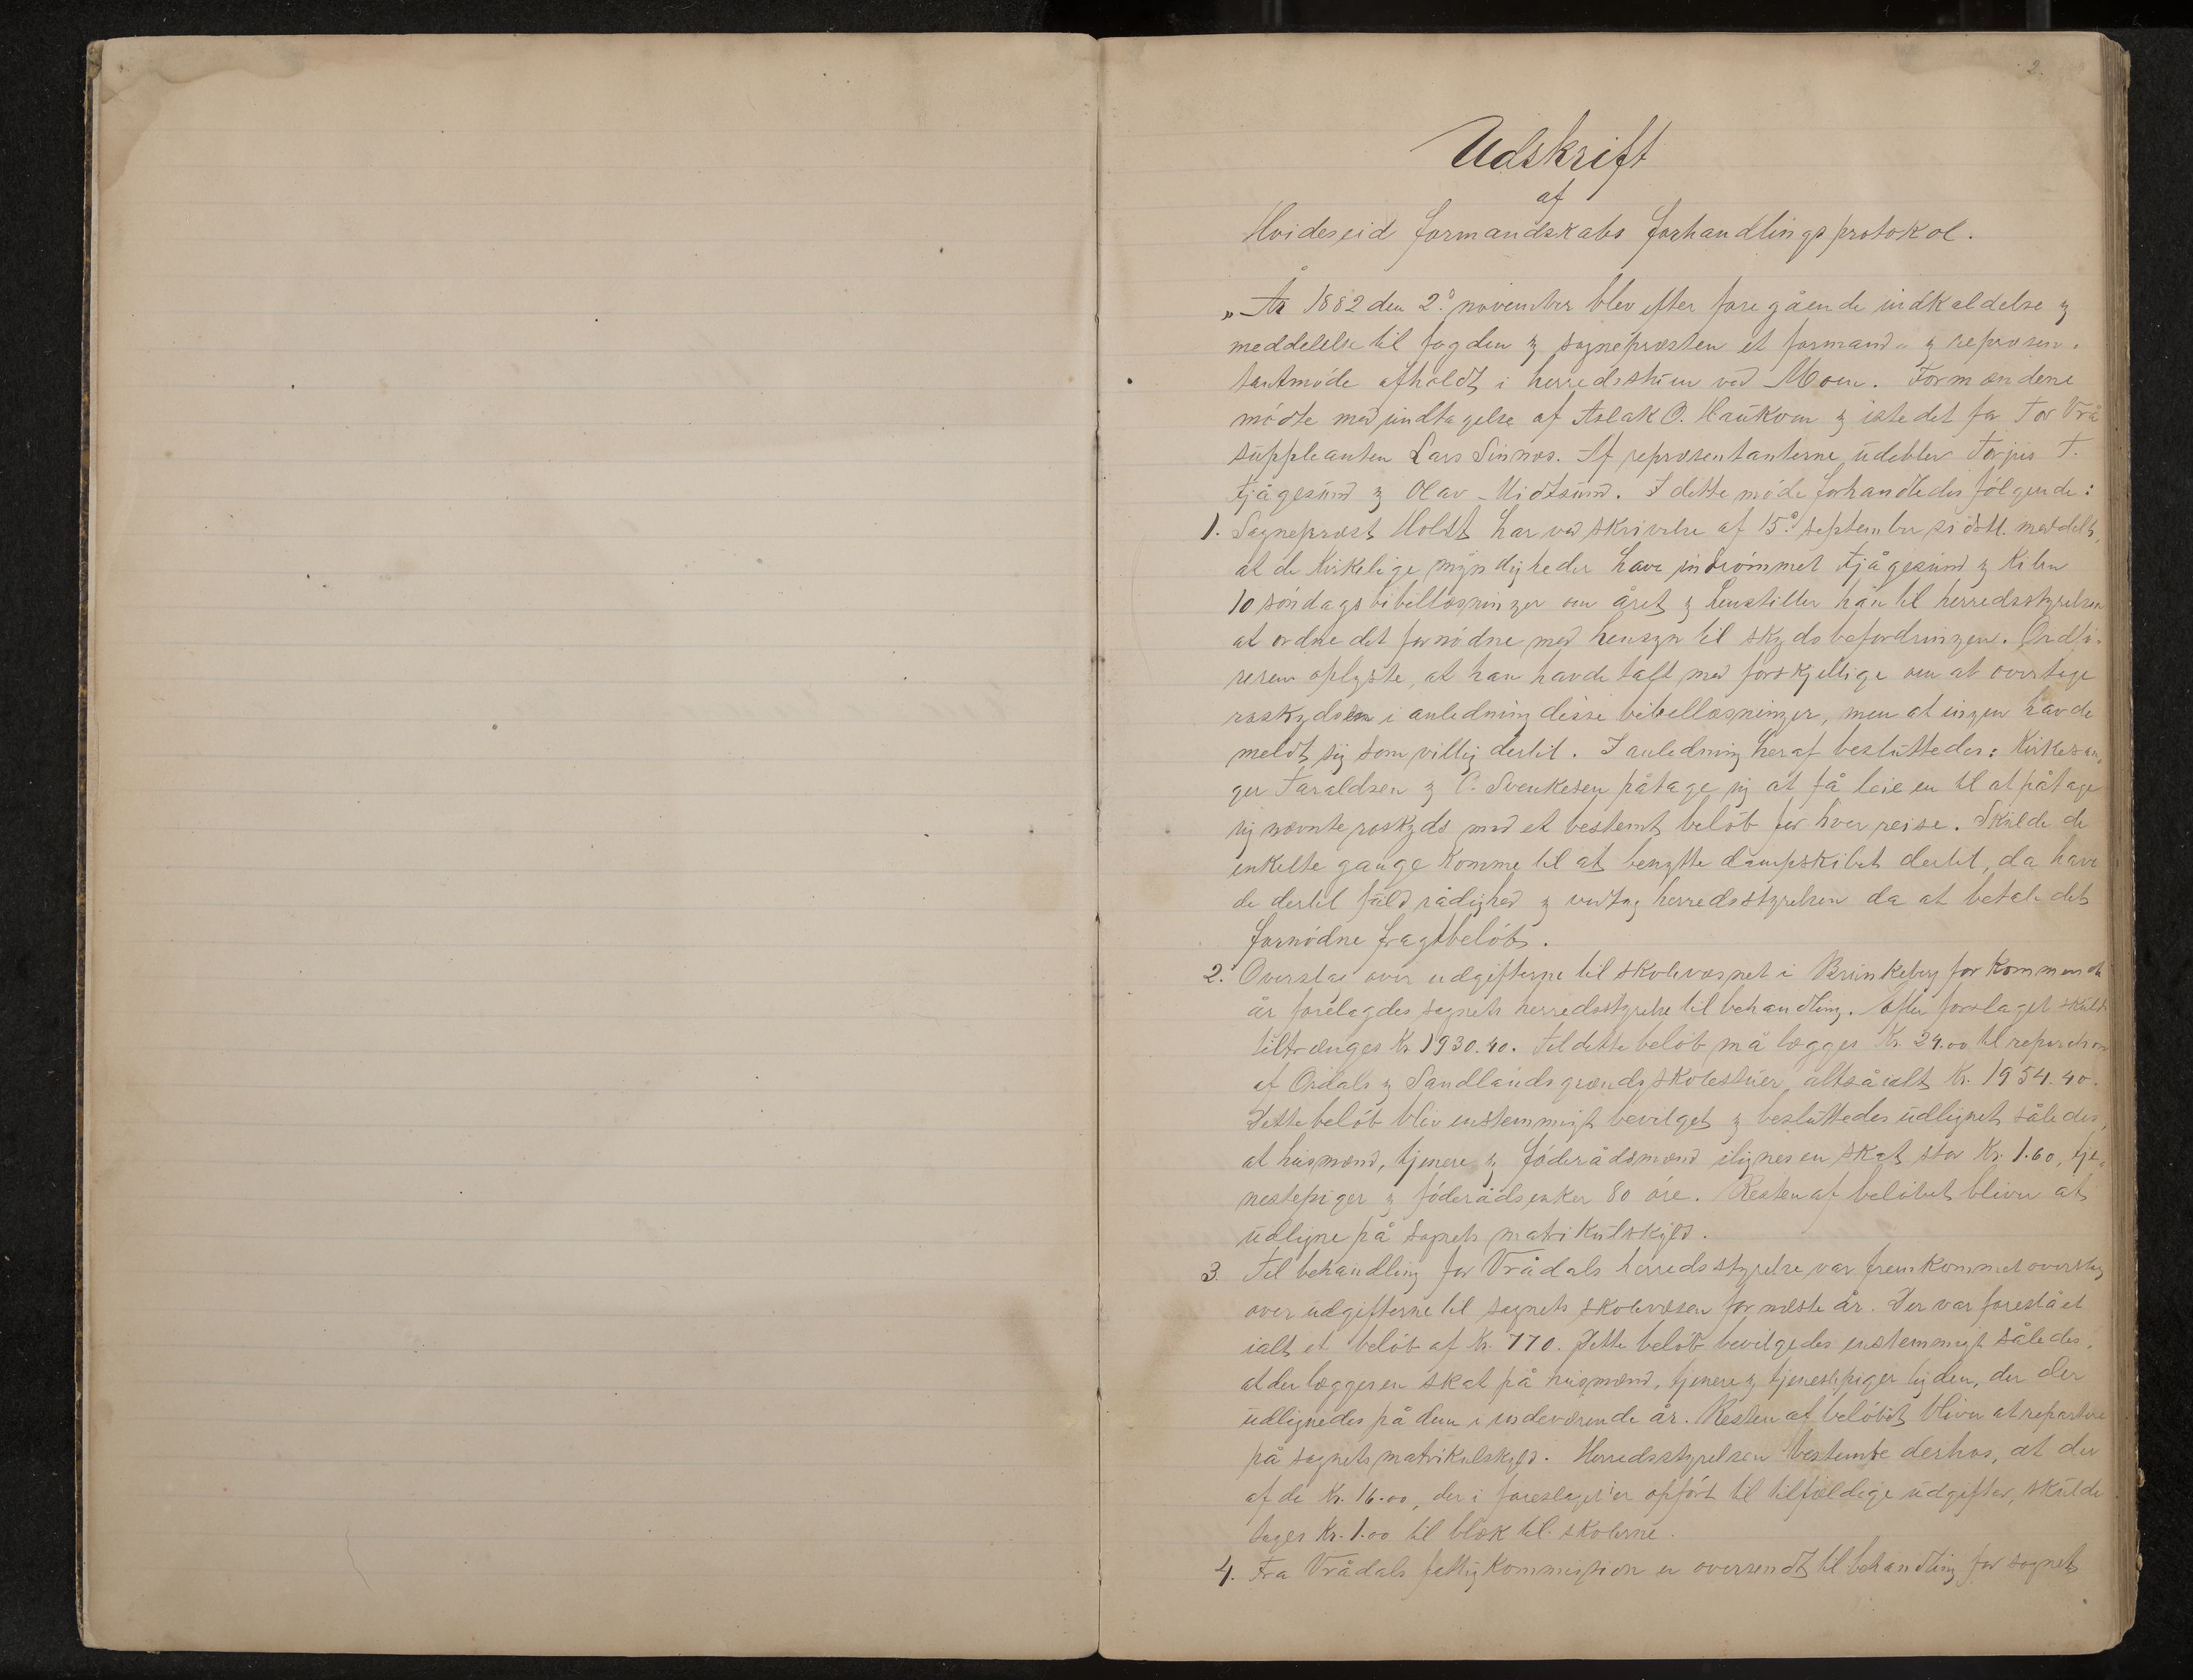 2.
Udskrift
af
Hvideseid formandskabs forhandlingsprotokol.
„År 1882 den 2? november blev efter foregående indkaldelse og
meddelelse til fogden og sognepræsten et formand- og repræsen-
tantmøde afholdt i herredsstuen ved Moen. Formændene
mødte med undtagelse af Aslak O. Haukom og istedet for Tor Vrå
suppleanten Lars Sinnes. Af repræsentanterne udeblev Torjus T.
Fjågesund og Olav Midtsund. I dette møde forhandledes følgende:
1. Sogneprest Holst har ved skrivelse af 15de september sidstl. meddelt,
at de kirkelige myndigheder have indrømmet Fjågesund og Kilen
10 søndagsbibellæsninger om året og henstiller han til herredsstyrelsen
at ordne det fornødne med hensyn til skydsbefordringen. Ordfø-
reren oplyste, at han havde talt med forskjellige om at overtage
roskydsen i anledning disse bibellæsninger, men at ingen havde
meldt sig som villig dertil. I anledning heraf besluttedes: Kirkesan-
ger Taraldsen og O. Svenkesen påtage sig at få leie en til at påtage
sig nævnte roskyds med et bestemt beløb for hver reise. Skulde de
enkelte gange komme til at benytte dampskibet dertil, da have
de dertil fuld rådighed og vedtog herredsstyrelsen da at betale det
fornødne fragtbeløb.
2. Overslag over udgifterne til skolevæsnet i Brunkeberg for kommende
år forelagdes sognets herredsstyrelse til behandling. Efter forslaget skulde
tiltrænges Kr. 1930.40. Til dette beløb må lægges Kr. 24.00 til reparation
af Ordals og Sandlandsgrænds skolestuer, altså ialt Kr. 1954.40.
Dette beløb blev enstemmigt bevilget og besluttedes udlignet således,
at husmænd, tjenere og føderådsmænd ilignes en skat stor Kr. 1.60, tje-
nestepiger og føderådsenker 80 øre. Resten af beløbet bliver at
udligne på sognets matrikulskyld.
3. Til behandling for Vrådals herredsstyrelse var fremkommet overslag
over udgifterne til sognets skolevæsen for næste år. Der var foreslået
ialt et beløb af Kr. 770. Dette beløb bevilgedes enstemmigt således,
at der lægges en skat på husmænd, tjenere og tjenestepiger lig den, der
udlignedes på dem i indeværende år. Resten af beløbet bliver at repartere
på sognets matrikulskyld. Herredsstyrelsen bestemte derhos, at der
af de Kr. 16.00, der i foreslaget er opført til tilfældige udgifter, skulde
tages Kr. 1.00 til blæk til skolerne.
4. Fra Vrådals fattigkommission er oversendt til behandling for sognets